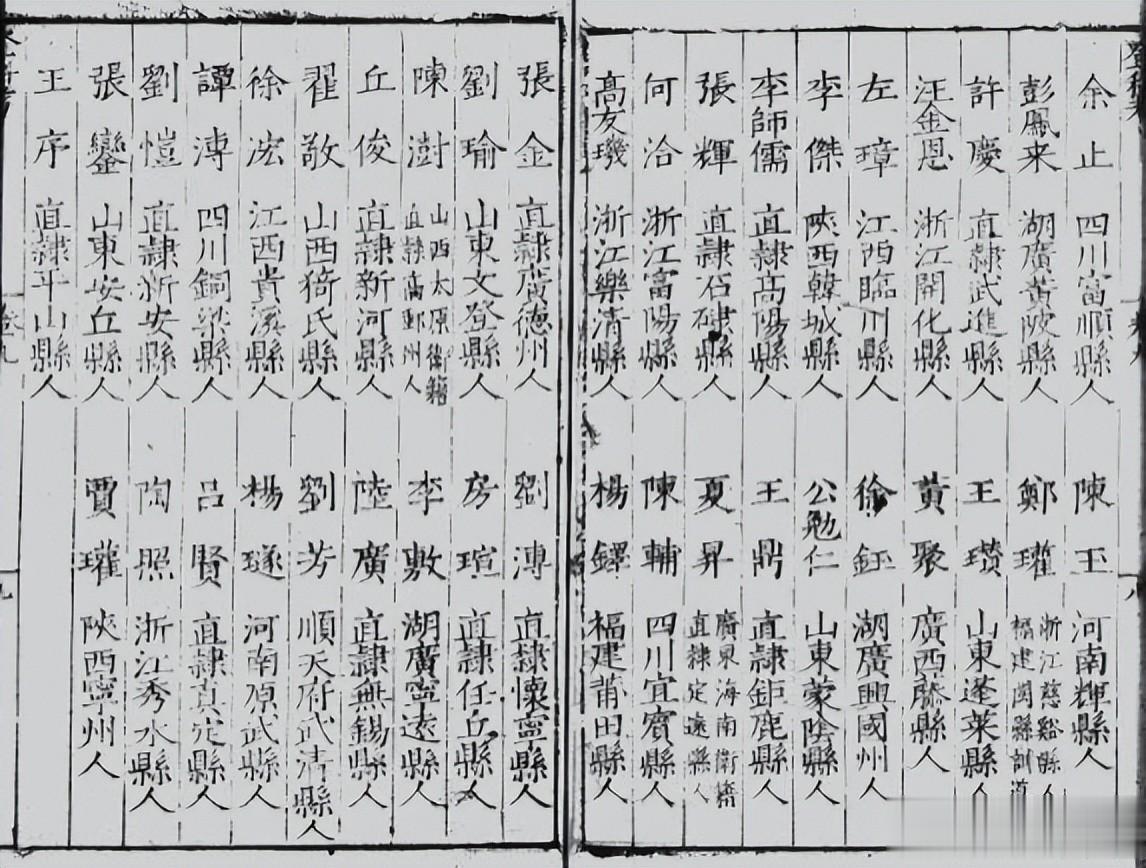 余止 四川富順縣人
陳玉 河南輝縣人
彭鳳来 湖廣黃陂縣人
鄭瓘 浙江慈谿縣人 福建閩縣訓導
許慶 直隷武進縣人
王瓚 山東蓬萊縣人
汪金恩 浙江開化縣人
黃聚 廣西藤縣人
左璋 江西臨川縣人
徐鈺 湖廣興國州人
李傑 陝西韓城縣人
公勉仁 山東蒙陰縣人
李師儒 直隷高陽縣人
王鼎 直隷鉅鹿縣人
張輝 直隷石埭縣人
夏昇 廣東海南衛籍 直隷定遠縣人
何洽 浙江富陽縣人
陳輔 四川宜賓縣人
高友璣 浙江樂清縣人
楊鐸 福建莆田縣人
張金 直隷廣德州人
劉溥 直隷懷寧縣人
劉瑜 山東文登縣人
房瑄 直隷任丘縣人
陳澍 山西太原衛籍 直隷高郵州人
李敷 湖廣寧遠縣人
丘俊 直隷新河縣人
陸廣 直隷無錫縣人
翟敬 山西猗氏縣人
劉芳 順天府武清縣人
徐浤 江西貴溪縣人
楊璲 河南原武縣人
譚溥 四川銅梁縣人
呂賢 直隷真定縣人
劉愷 直隷新安縣人
陶照 浙江秀水縣人
張鑾 山東安丘縣人
賈瓘 陝西寧州人
王序 直隷平山縣人